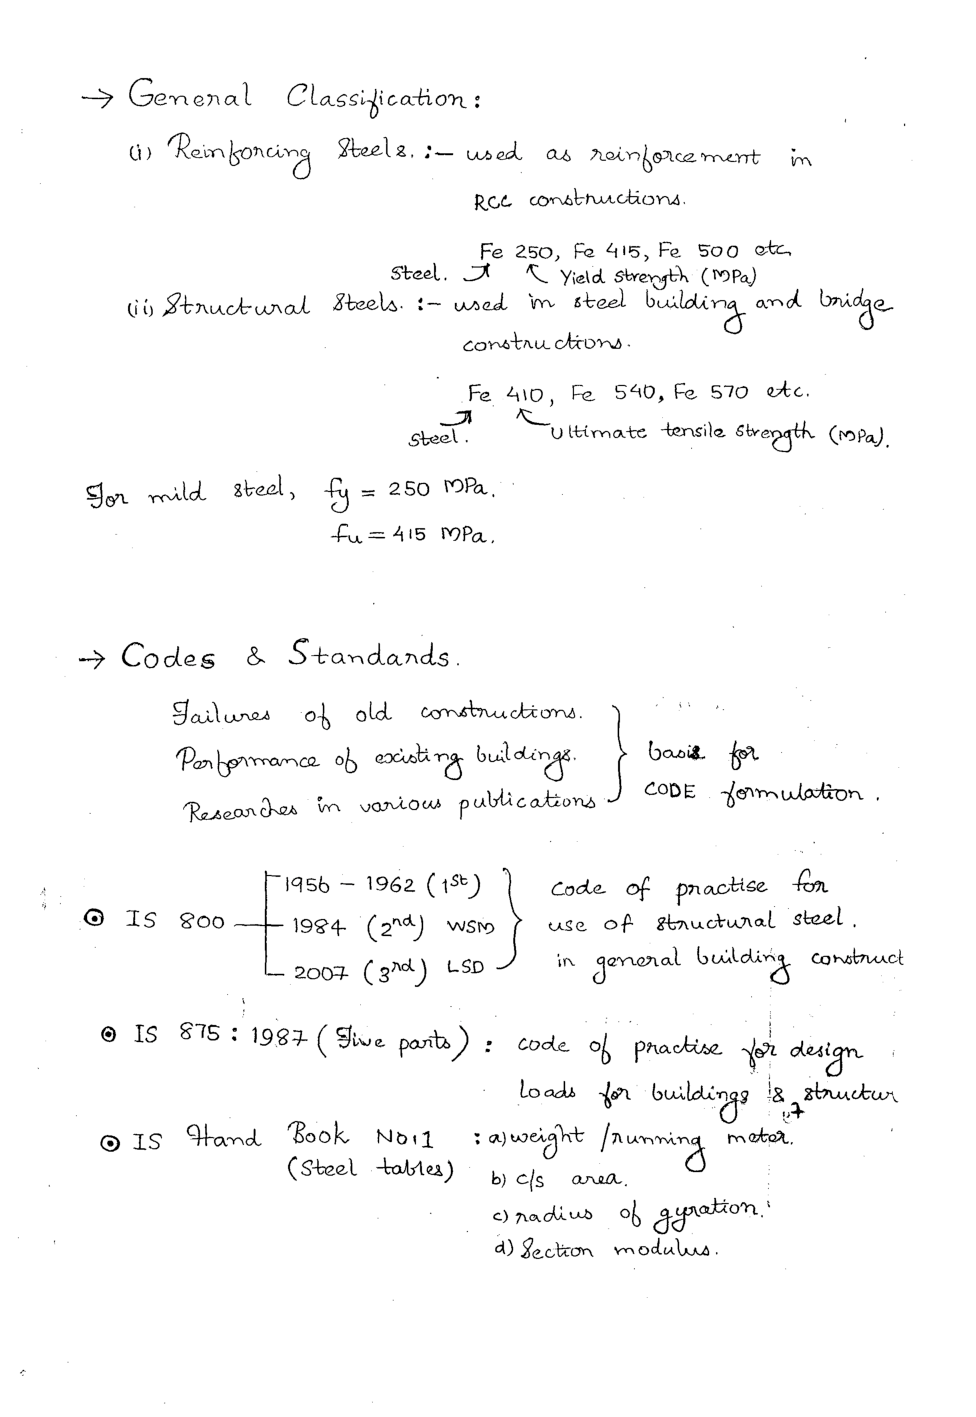 → General Classification:
(i) Reinforcing Steels. :- used as reinforcement in
RCC constructions.
Fe 250, Fe 415, Fe 500 etc
Steel. Yield strength (MPa)
(ii) Structural Steels. :- used in steel building and bridge
constructions.
Fe 410, Fe 540, Fe 570 etc.
Steel. Ultimate tensile strength (MPa).
For mild steel, fy = 250 MPa.
fu = 415 MPa.
→ Codes & Standards.
Failures of old constructions.
Performance of existing buildings. basis for
Researches in various publications CODE formulation.
1956 - 1962 (1st) code of practise for
IS 800 1984 (2nd) WSM use of structural steel.
2007 (3rd) LSD in general building construct
IS 875 : 1987 (Five parts) : code of practise for design
loads for buildings & structur
IS Hand Book No:1 : a) weight /running meter.
(Steel tables) b) c/s area.
c) radius of gyration.
d) Section modulus.